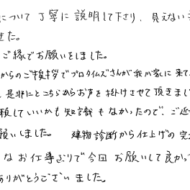 について丁寧に説明して下さり、見えない
せた。
ご縁でお願いをしました。
からのご挨拶でプロタイムズさんが我が家に来て
、是非にとこちらからお声を掛けさせて頂きまして
頼していいかも知識もなかったので、ご近
願いしました。 建物診断から仕上げの完
なお仕事ぶりで今回お願いして良かっ
ありがとうございました。